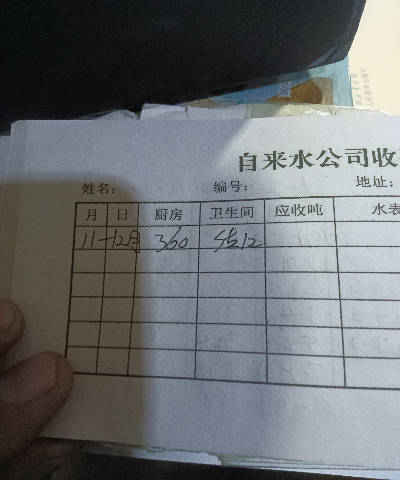 自来水公司收
姓名： 编号： 地址：
月 日 厨房 卫生间 应收吨 水表
11-12月 360